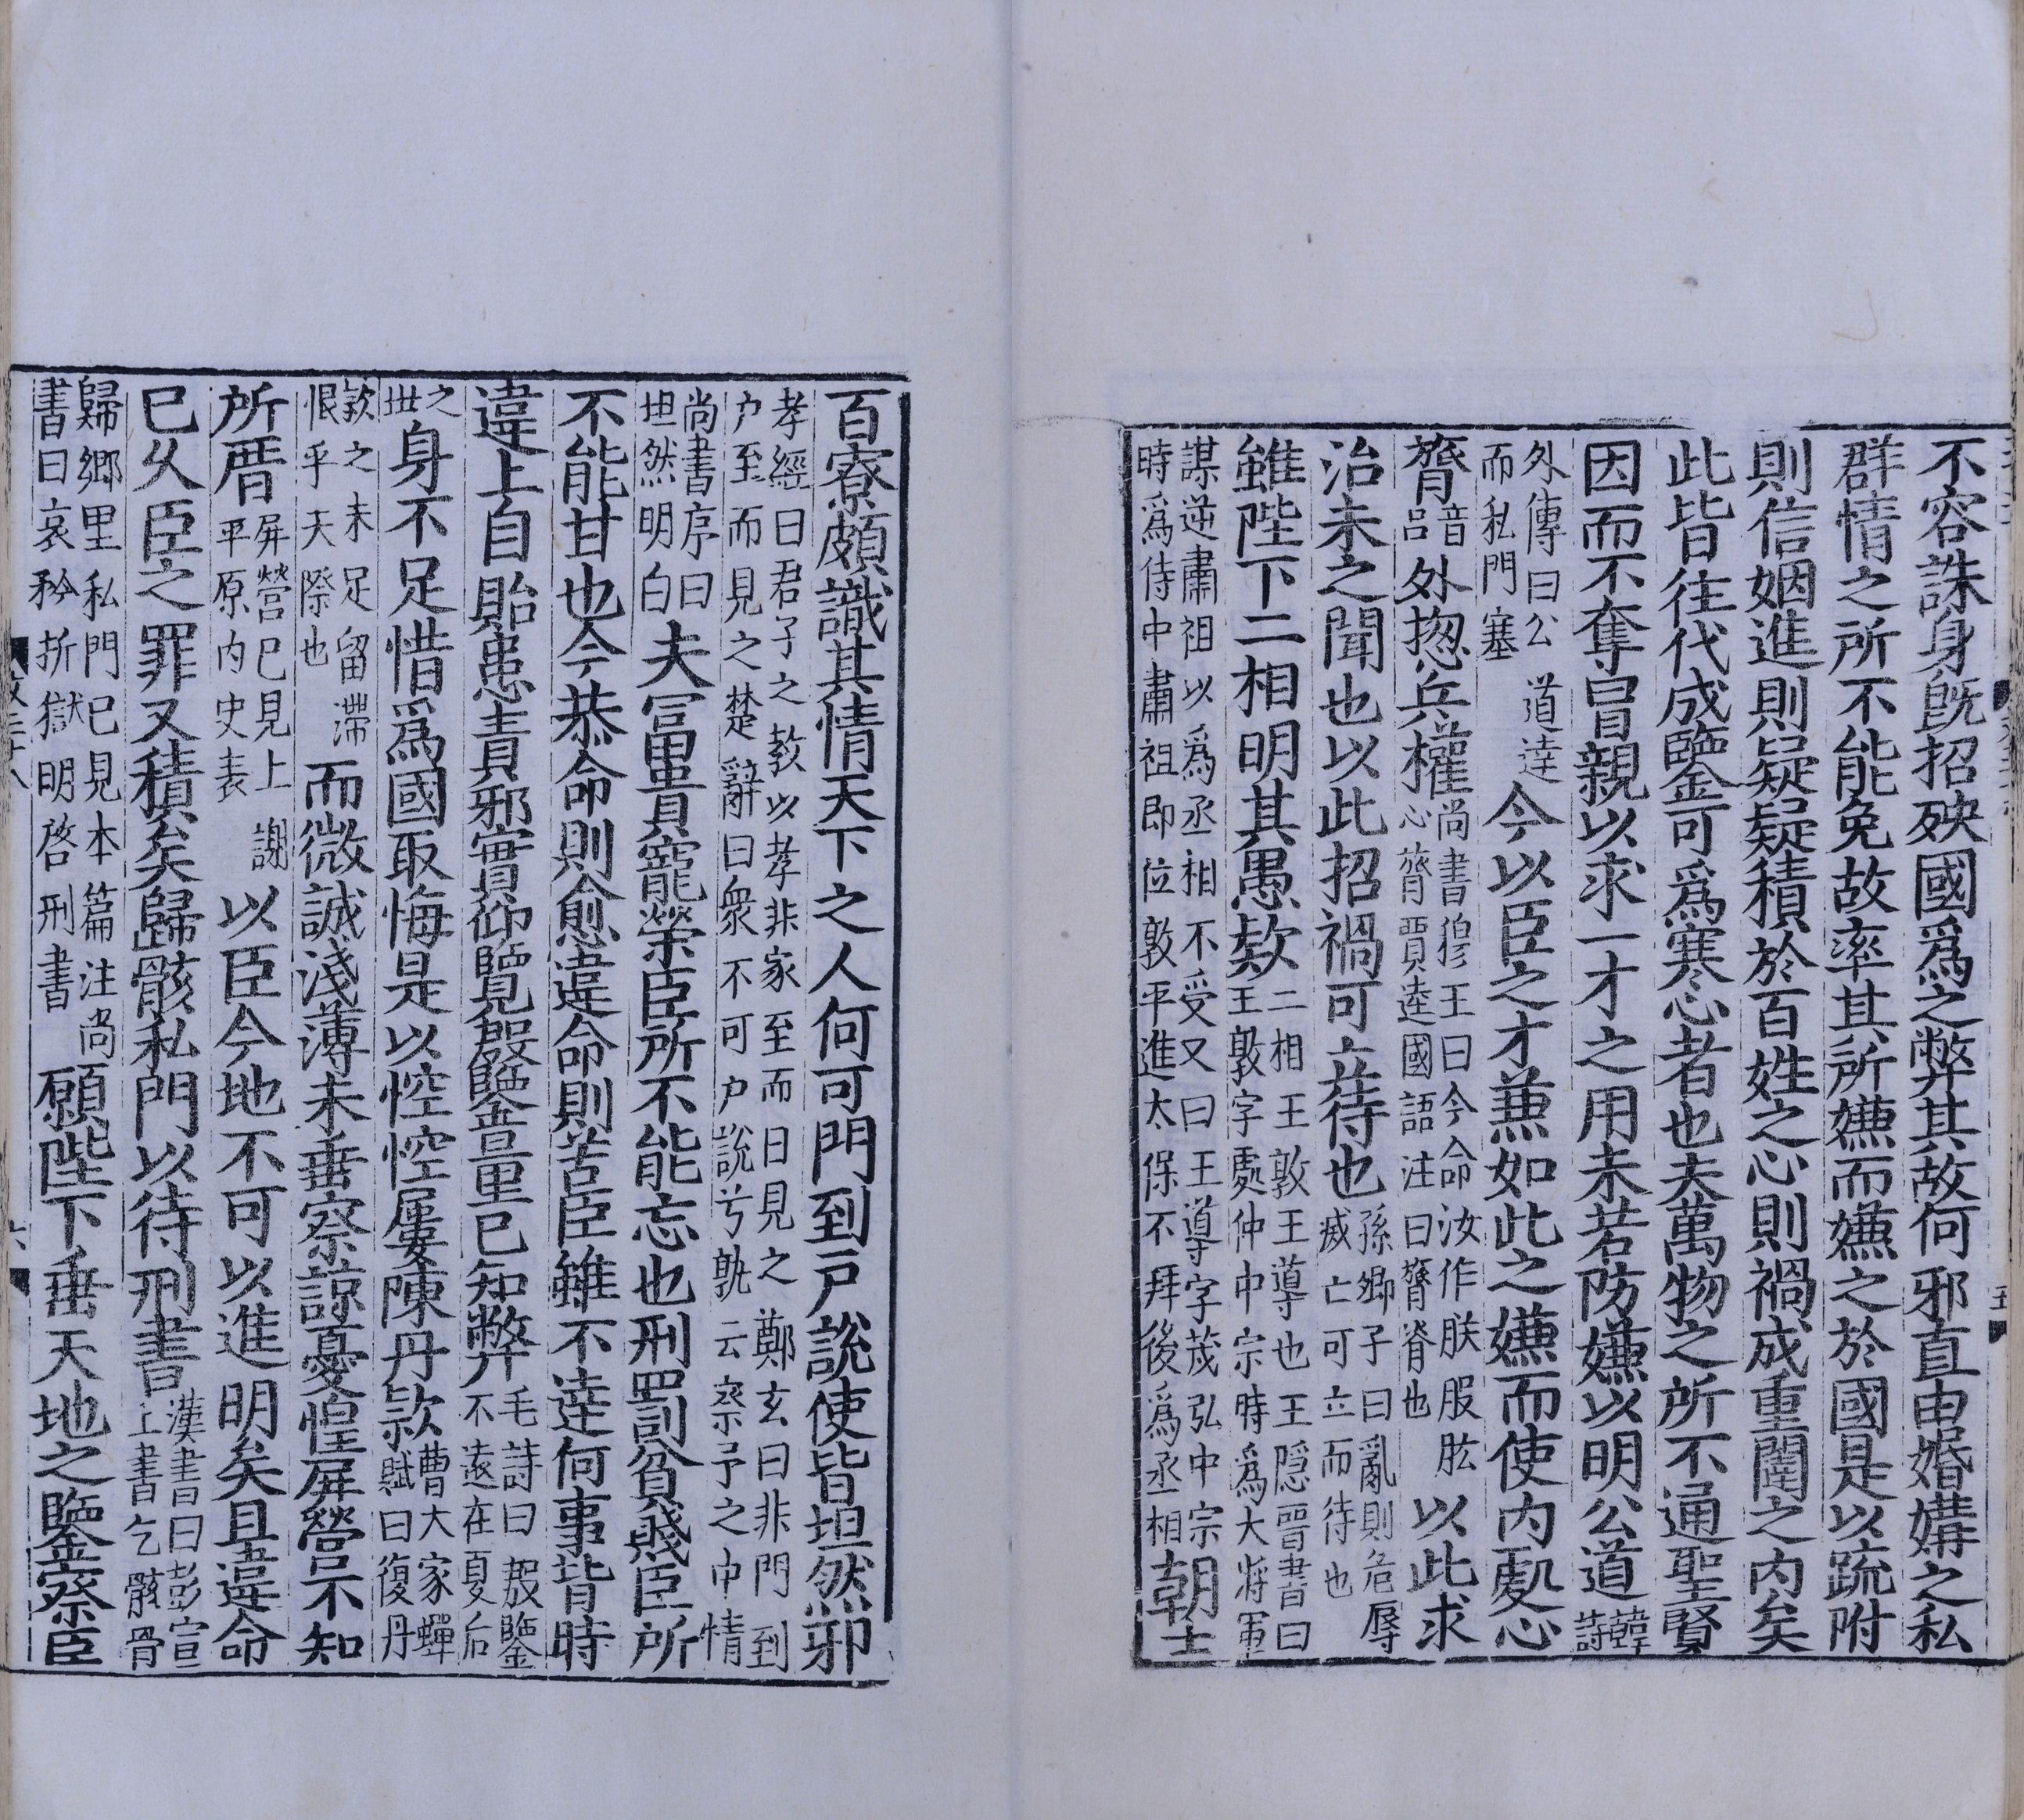 不容誅身旣招殃國爲之弊其故何邪直由婚媾之私
群情之所不能免故率其所嫌而嫌之於國是以疏附
則信姻進則疑疑積於百姓之心則禍成重闈之内矣
此皆往代成鑒可爲寒心者也夫萬物之所不通聖賢
因而不奪冒親以求一才之用未若防嫌以明公道韓詩
外傳曰公道達而私門塞今以臣之才兼如此之嫌而使内處心
膂音呂外揔兵權尚書穆王曰今命汝作朕服肱心膂賈逵國語注曰膂脊也以此求
治未之聞也以此招禍可立待也孫卿子曰亂則危辱滅亡可立而待也
雖陛下二相明其愚款二相王敦王導也王隱晉書曰王敦字處仲中宗時爲大將軍
謀逆肅祖以爲丞相不受又曰王導字茂弘中宗時爲侍中肅祖即位敦平進太保不拜後爲丞相朝士
百寮頗識其情天下之人何可門到戶說使皆坦然邪
孝經曰君子之教以孝非家至而日見之鄭玄曰非門到户至而見之楚辭曰衆不可户說兮孰云察予之中情
尚書序曰坦然明白夫冨貴寵榮臣所不能忘也刑罰貧賤臣所
不能甘也今恭命則愈違命則苦臣雖不達何事背時
違上自貽患責邪實仰覽殷鑒量已知弊毛詩曰殷鑒不遠在夏后
之世身不足惜爲國取悔是以悾悾屢陳丹款曹大家蟬賦曰復丹
款之未足留滯恨乎天際也而微誠淺薄未垂察諒憂惶屏營不知
所厝屏營已見上謝平原内史表以臣今地不可以進明矣且違命
已久臣之罪又積矣歸骸私門以待刑書漢書曰彭宣上書乞骸骨
歸鄉里私門已見本篇注尚書曰哀矜折獄明啓刑書願陛下垂天地之鑒察臣